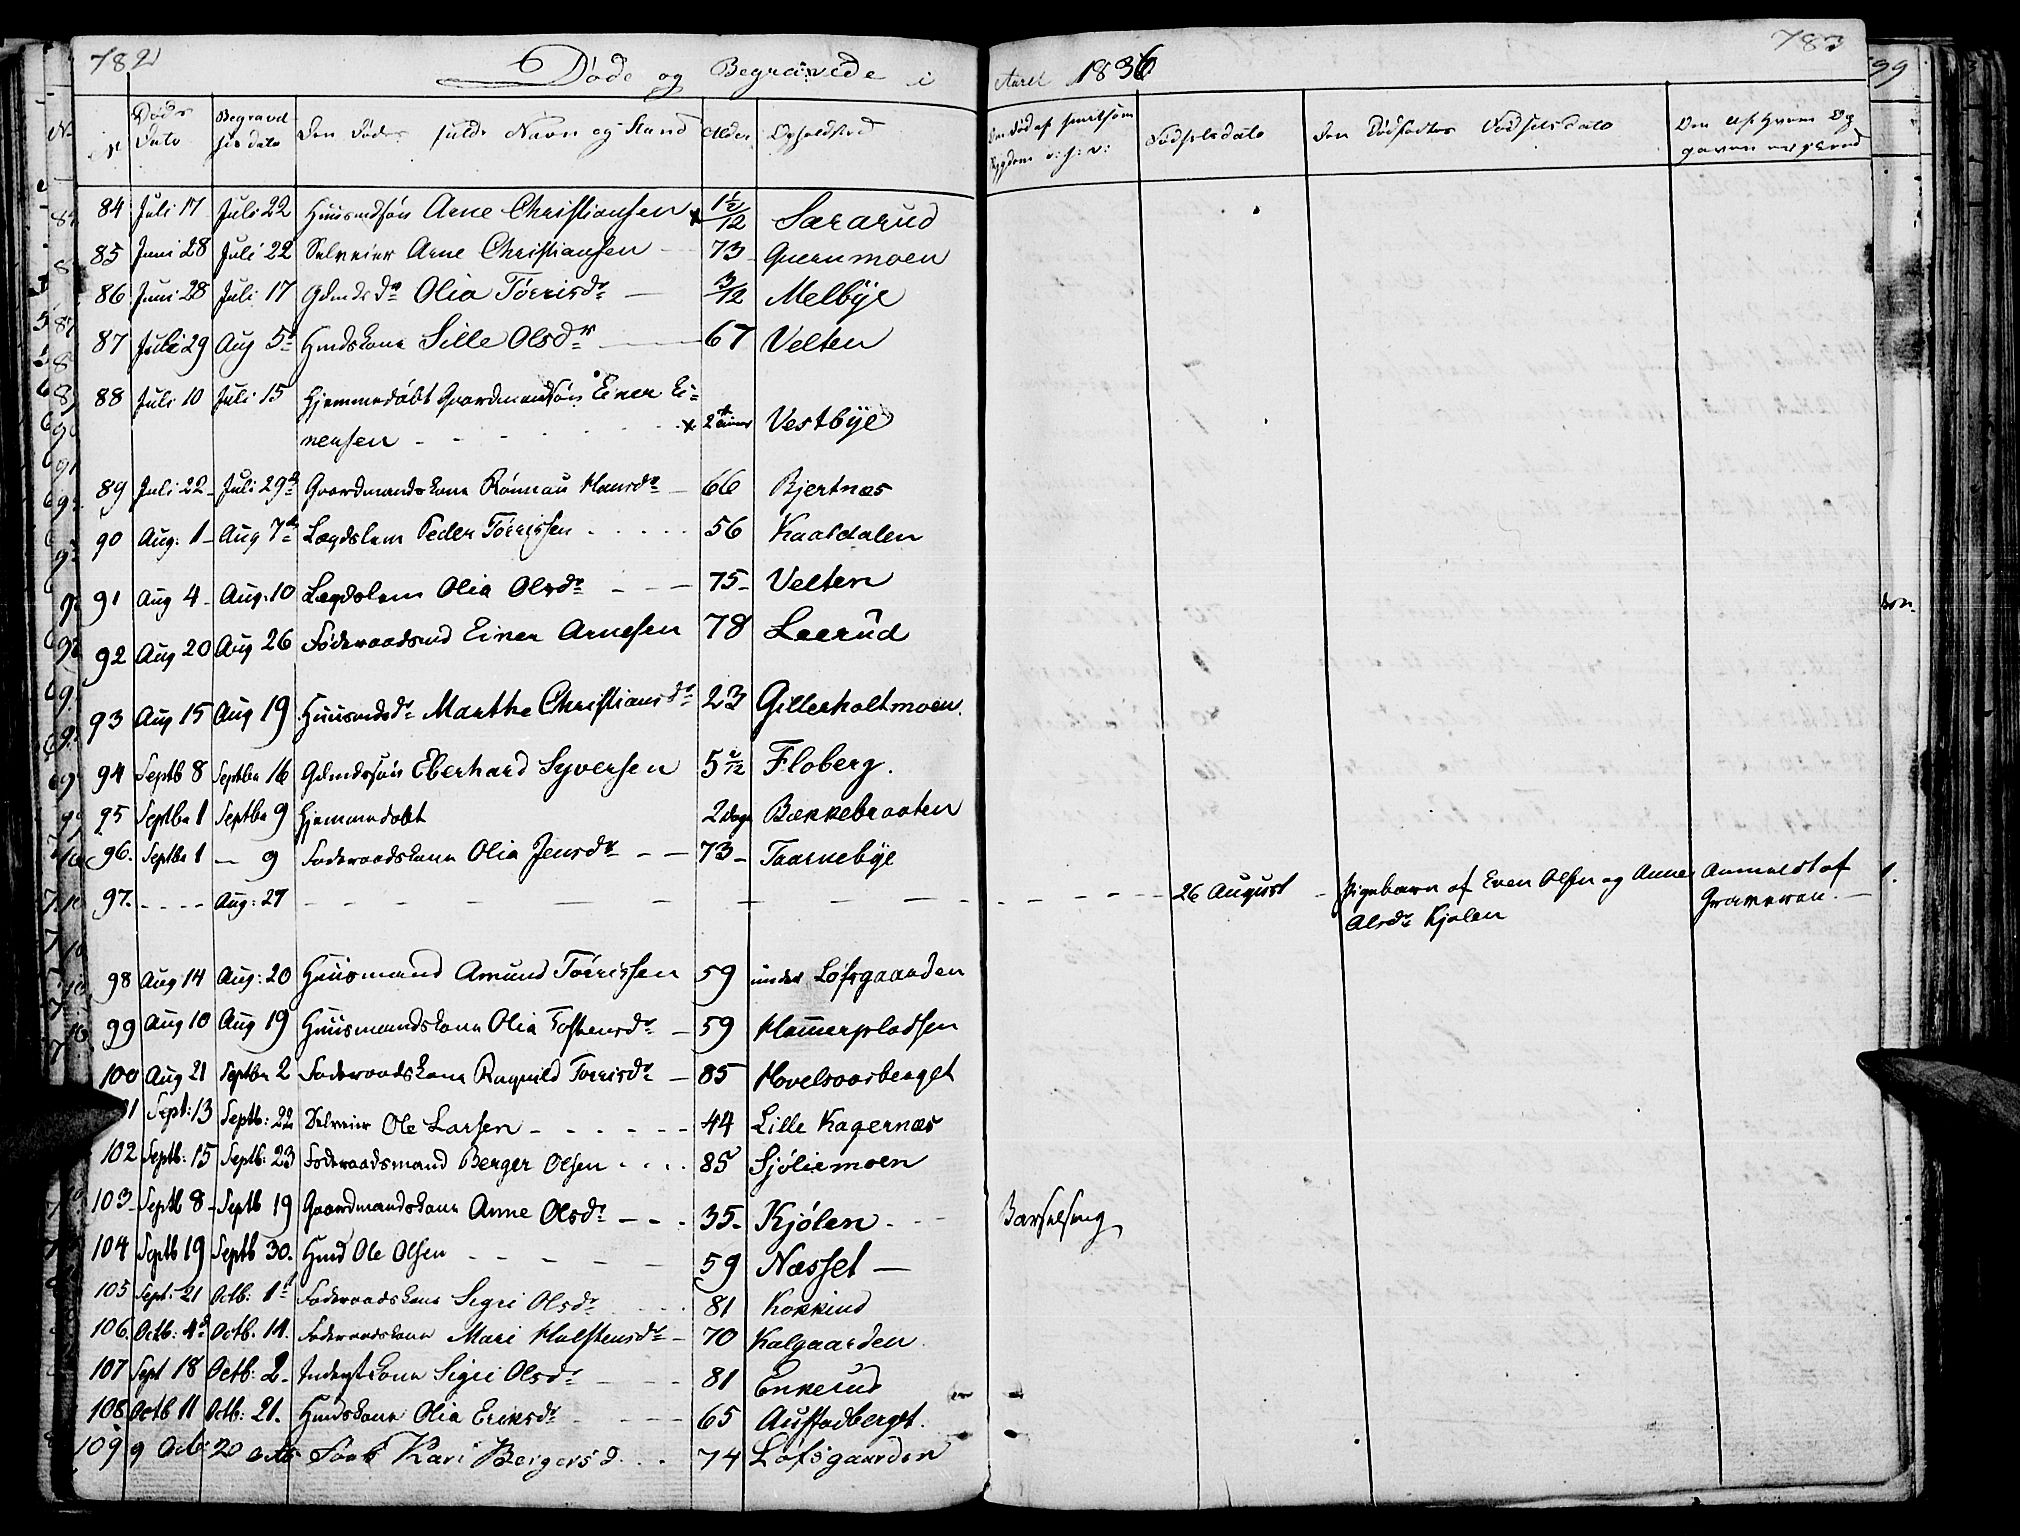 782 Døde og Begravede i Aaret 1836 783
No Døds Dato Begravelses dato Den Dødes fulde Navn og Stand Alder Opholdsted Den Død af smitsom Sygdom o: s: v: Fødselsdato Den Dødfødtes Fødselsdato
84 Juli 17 Juli 22 Huusmdsøn Arne Christiansen 1½/12 Sararud
85 Juni 28 Juli 22 Selveier Arne Christiansen 73 Quernmoen
86 Juni 28 Juli 17 Gdmds Dr Olia Tørrisdr 3/12 Melbÿe
87 Juli 29 Aug 5t Hmdskone Sille Olsdr 67 Velten
88 Juli 10 Juli 15 Hjemmedøbt Gaardmandsøn Einer Ei=
nersen 2 timer Vestbÿe
89 Juli 22 Juli 29d Gaardmandskone Rønnau Hansdr 66 Bjertnæs
90 Aug: 1 Aug 7d Lægdslem Peder Tørrissen 56 Kaatdalen
91 Aug 4 Aug: 10 Lægdslem Olia Olsdr 75 Velten
92 Aug 20 Aug 26 Føderaadsmd Einer Arnesen 78 Leerud
93 Aug 15 Aug 19 Huusmdsdr Marthe Christiansdr 23 Gillerholtmoen.
94 Septb 8 Septbr 16 Gdmdssøn Eberhard Syversen 5 2/12 Floberg.
95 Septbr 1 Septbr 9 Hjemmedøbt 2 Dage Bækkebraaten
96. Septbr 1 — 9 Føderaadskone Olia Jensdr 73 Taarnebÿe
97. Aug: 27 26 August Pigebarn af Even Olsen og Anne Anmeldt af
Olsdr Kjølen Graveren.
98 Aug 14 Aug: 20 Huusmand Amund Tørrissen 59 under Lofsgaarden
99 Aug 10 Aug 19 Huusmandskone Olia Tostensdr 59 Hamerpladsen
100 Aug 21 Septbr 2 Føderaadskone Ragnild Torrisdr 85 Hovelsaasberget
101 Sept: 13 Septb: 22 Selveier Ole Larsen 44 Lille Kagernæs
102 Septb: 15 Septb: 23 Føderaadsmand Berger Olsen 85 Sjøliemoen
103 Septb 8 Septb 19 Gaardmandskone Anne Olsdr 35 Kjølen Barselseng
104 Septb 19 Septb 30. Hmd Ole Olsen 59 Næsset
105 Sept: 21 Octb: 1t Føderaadskone Sigri Olsdr 81 Kokkind
106. Octb: 4d Octb. 14. Føderaadskone Mari Halstensdr 70 Kalgaarden
107 Sept 18 Octb: 2 Inderstkone Sigri Olsdr 81 Enkerud
108 Octb 11 Octb: 21. Hmdskone Olia Eriksdr 65 Austadberget.
109 9 Octb: 20 Octb Kari Bergersd 74 Lofsgaarden